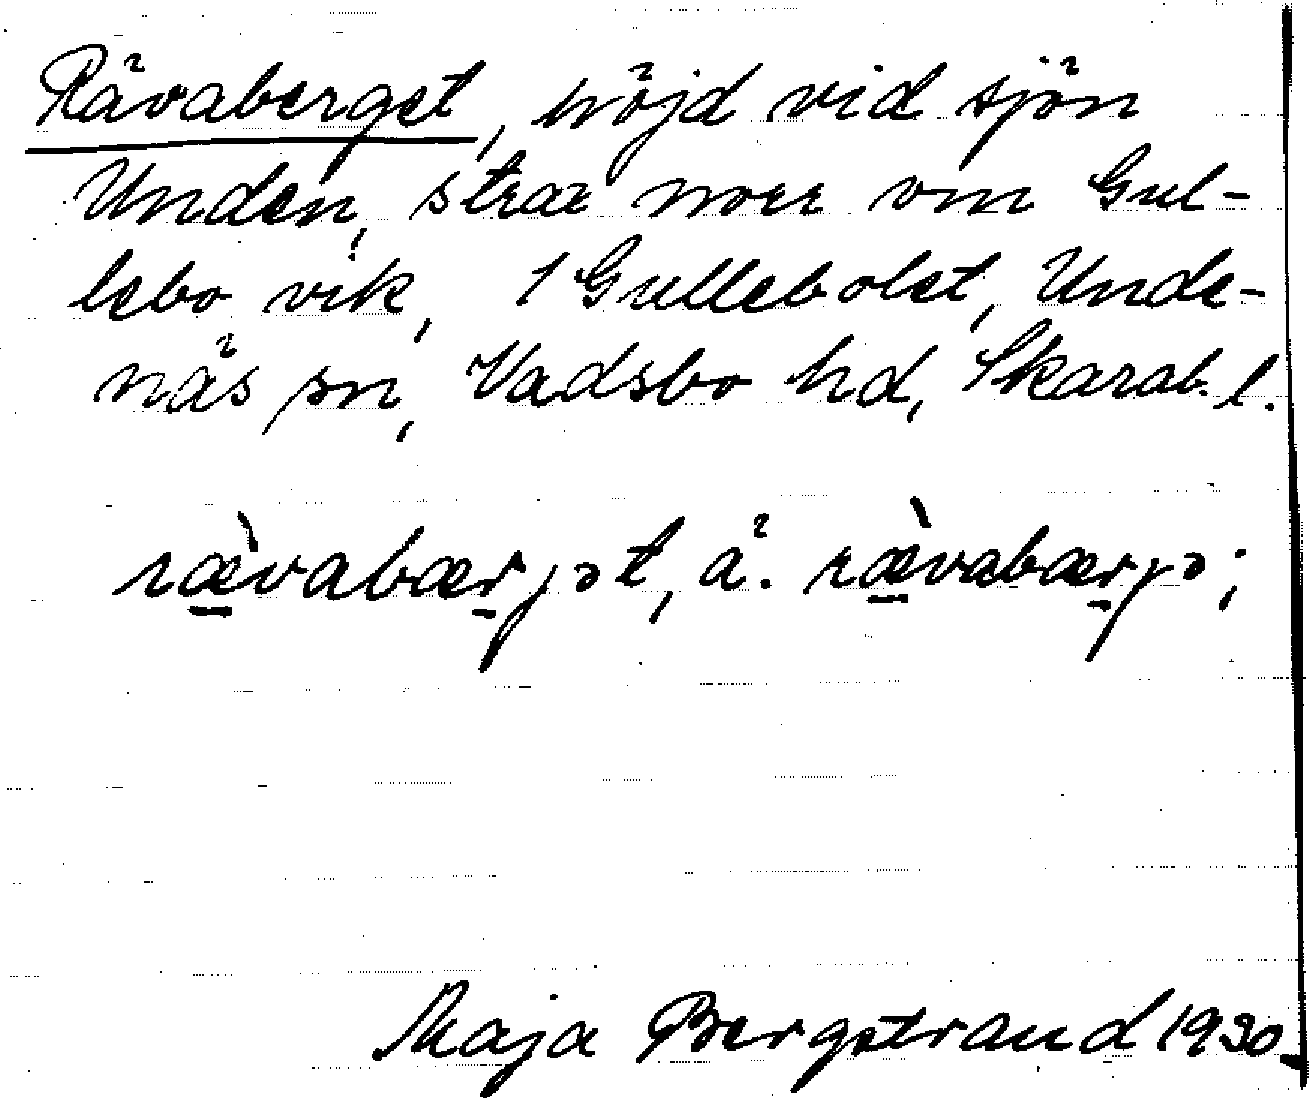 Rävaberget, höjd vid sjön
Unden, strax norr om Gul-
lebo vik, 1 Gullebolet, Unde-
näs sn, Vadsbo hd, Skarab. l.
ræ̀vabærjət, ä. ræ̀vabærjə;
Maja Bergstrand 1930.